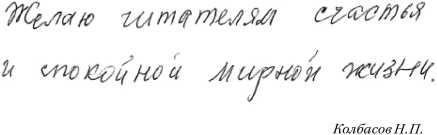 Желаю читателям счастья
и спокойной мирной жизни.
Колбасов Н.П.